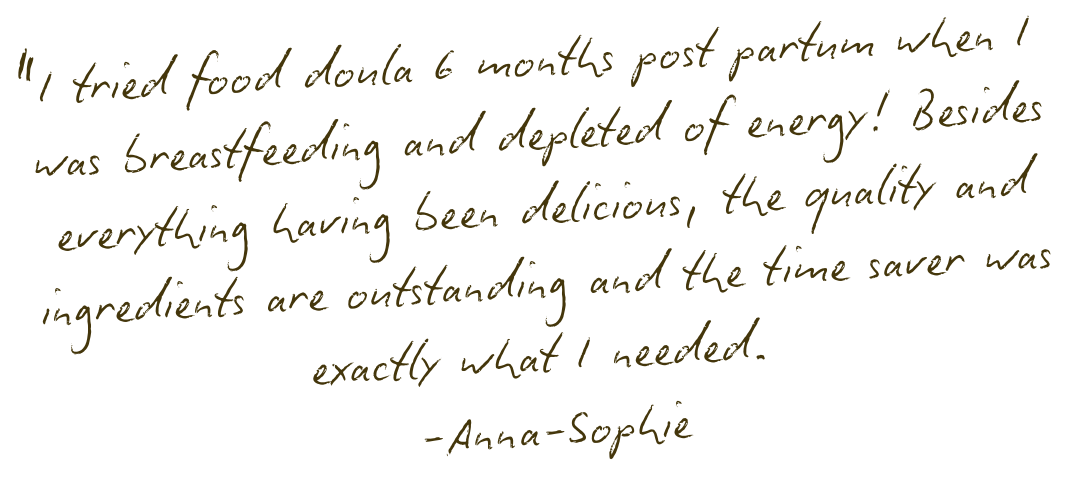 "I tried food doula 6 months post partum when I
was breastfeeding and depleted of energy! Besides
everything having been delicious, the quality and
ingredients are outstanding and the time saver was
exactly what I needed.
-Anna-Sophie